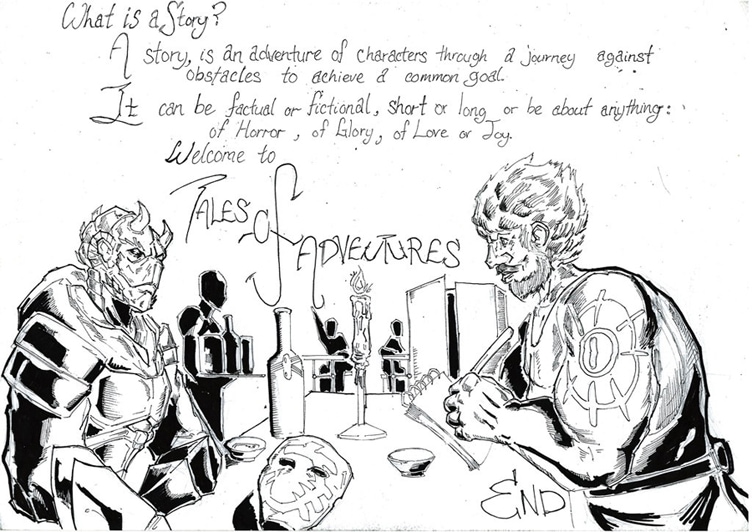 What is a Story?
A story, is an adventure of characters through a journey against
obstacles to achieve a common goal.
It can be factual or fictional, short or long or be about anything:
of Horror, of Glory, of Love or Joy.
Welcome to
TALES
of
ADVENTURES
END